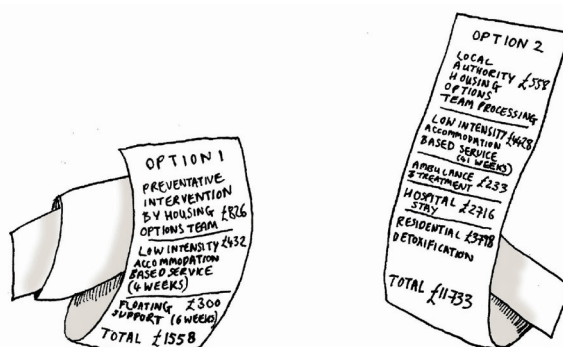 OPTION 1
PREVENTATIVE
INTERVENTION
BY HOUSING £826
OPTIONS TEAM
LOW INTENSITY £432
ACCOMMODATION
BASED SERVICE
(4 WEEKS)
FLOATING £300
SUPPORT (6 WEEKS)
TOTAL £1558
OPTION 2
LOCAL
AUTHORITY £558
HOUSING
OPTIONS
TEAM PROCESSING
LOW INTENSITY £4428
ACCOMMODATION
BASED SERVICE
(41 WEEKS)
AMBULANCE £233
& TREATMENT
HOSPITAL £2716
STAY
RESIDENTIAL £3798
DETOXIFICATION
TOTAL £11733